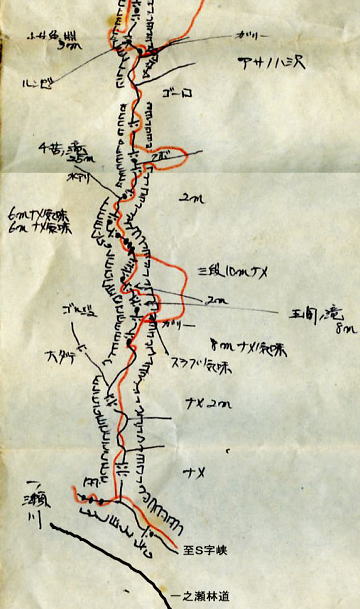 ガリー
9m
アサノハ沢
ルンゼ
ゴーロ
25m
水アリ
2m
6mナメ気味
6mナメ気味
三段10mナメ
2m
8m
ゴルジュ
ガリー
8mナメ気味
スラブ気味
大ダワ
ナメ2m
ナメ
一ノ瀬川
至S字峡
一之瀬林道